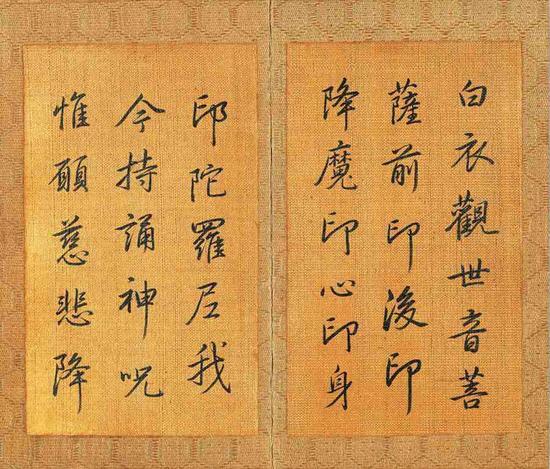 白衣觀世音菩
薩前印後印
降魔印心印身
印陀羅尼我
今持誦神呪
惟願慈悲降